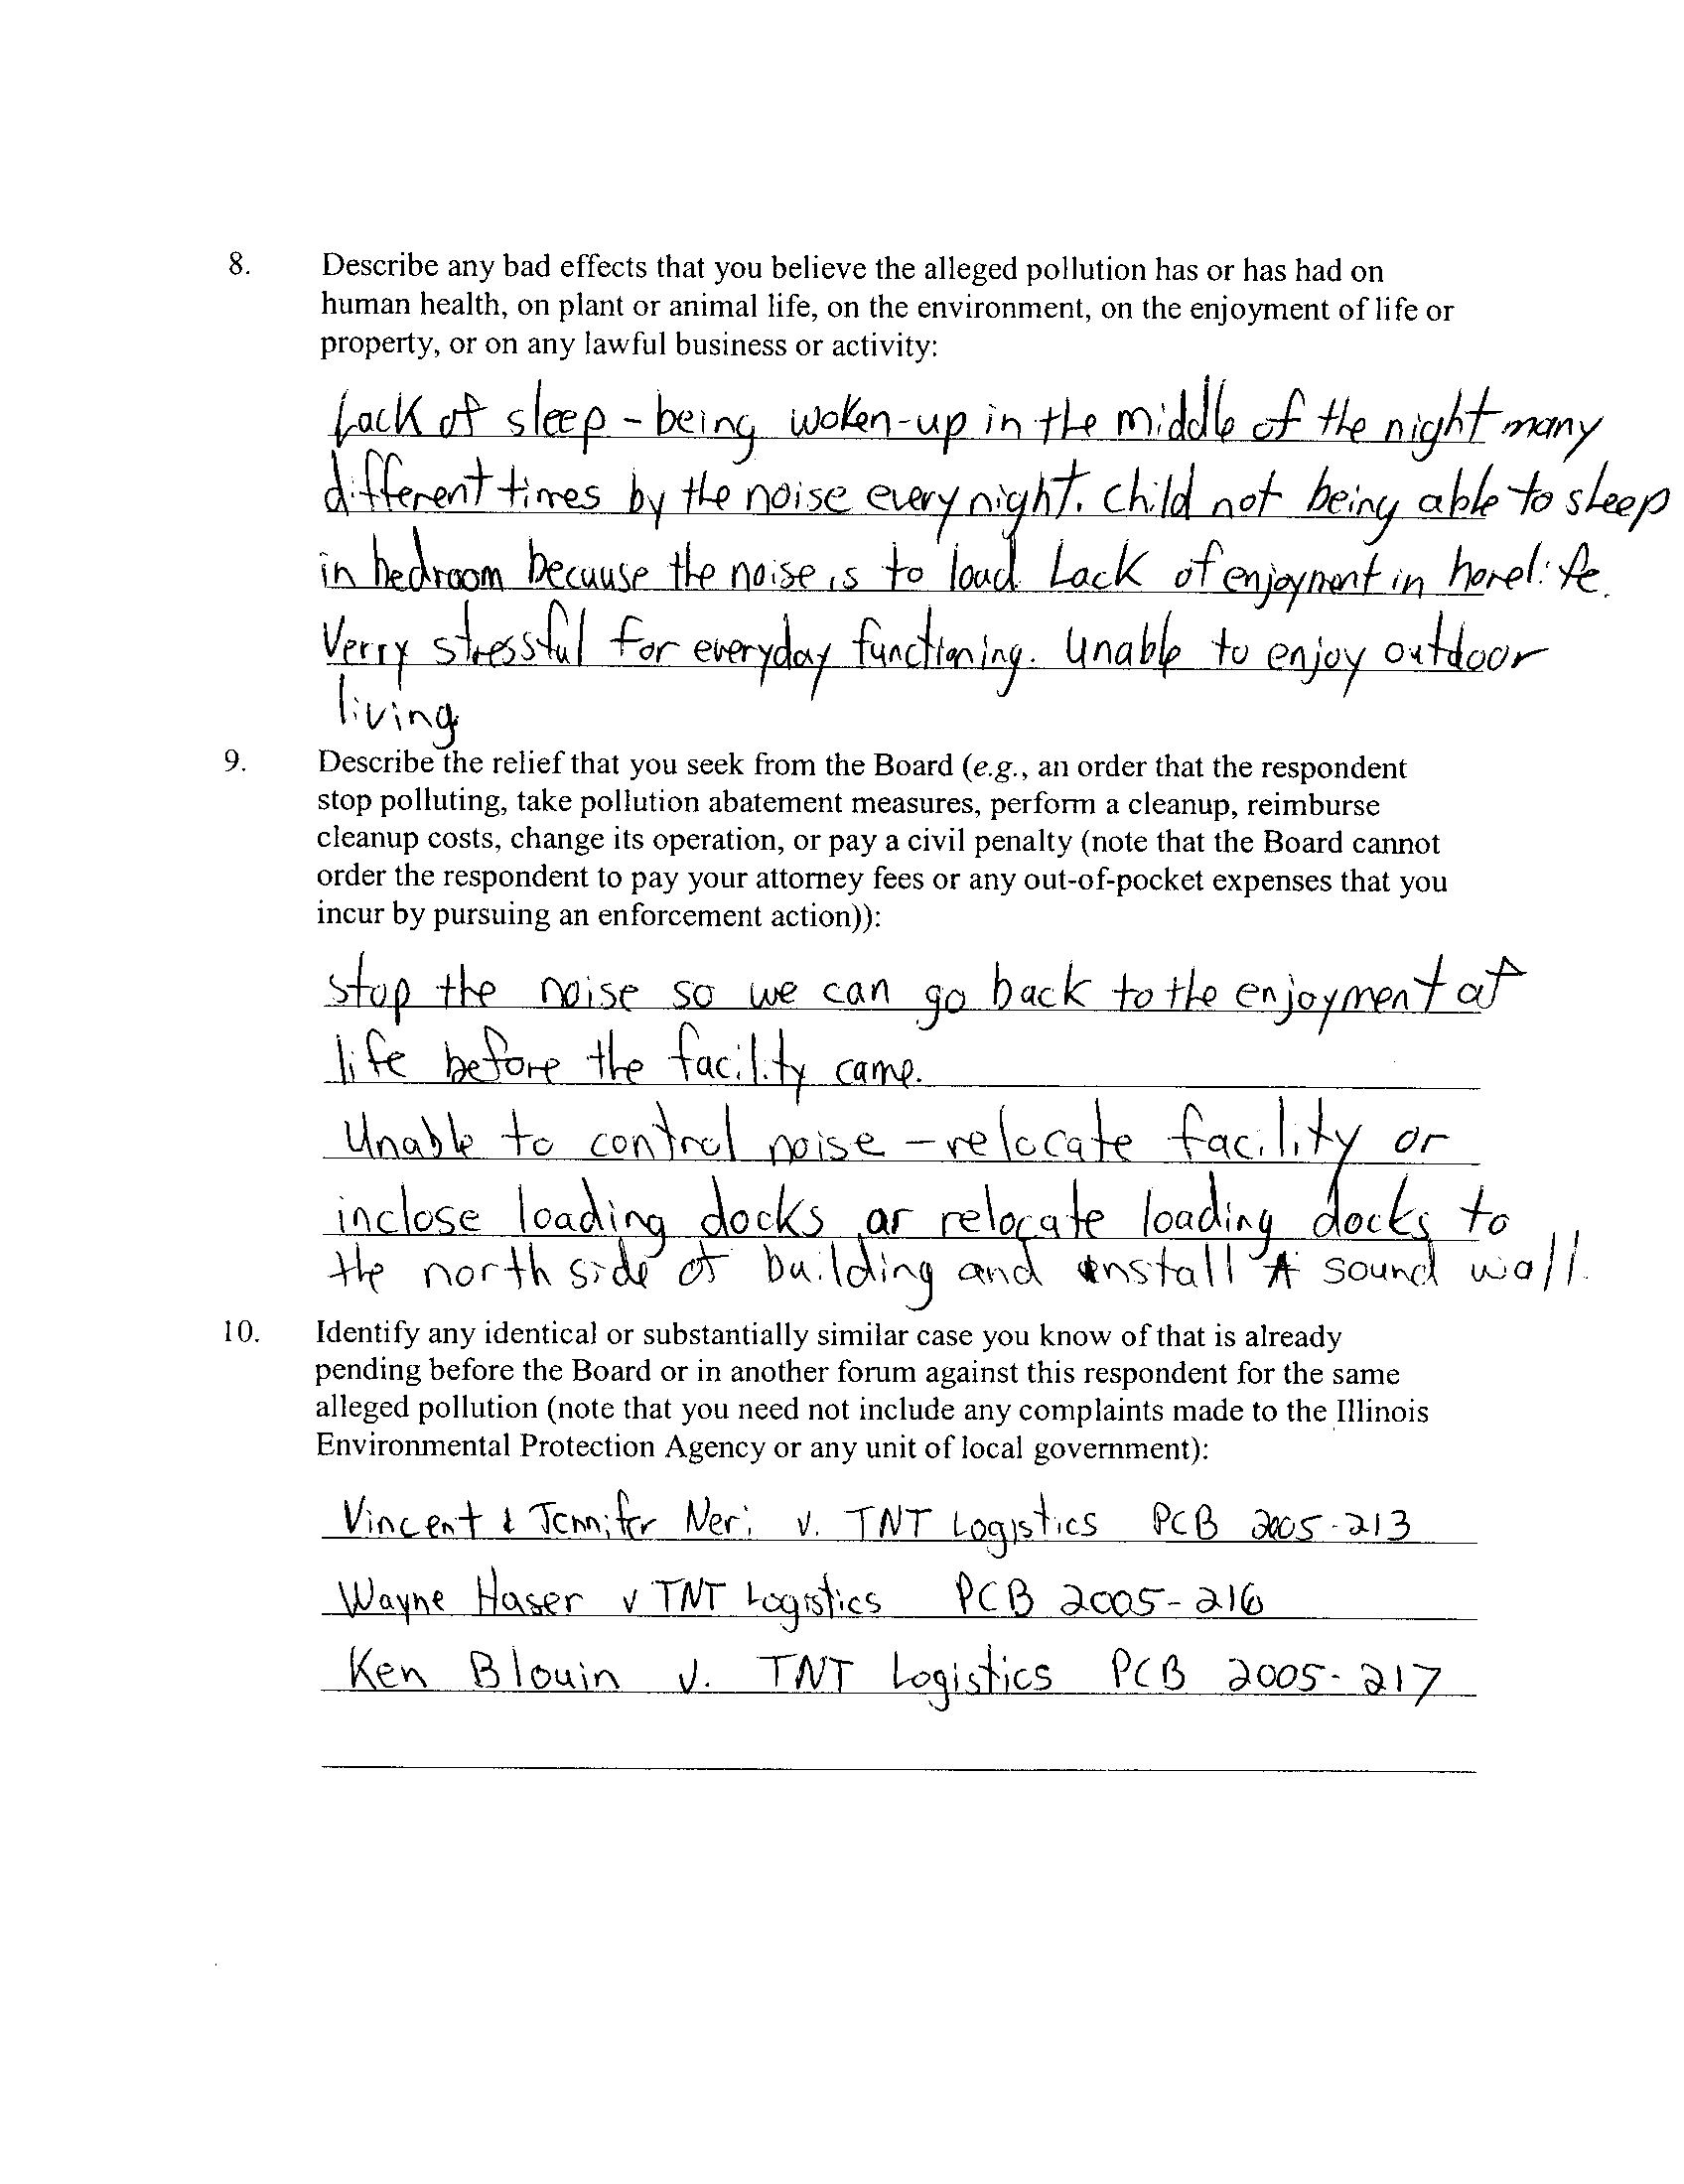 8. Describe any bad effects that you believe the alleged pollution has or has had on
human health, on plant or animal life, on the environment, on the enjoyment of life or
property, or on any lawful business or activity:
Lack of sleep - being woken-up in the middle of the night many
different times by the noise every night. Child not being able to sleep
in bedroom because the noise is to loud. Lack of enjoyment in homelife.
Verry stressful for everyday functioning. Unable to enjoy outdoor
living
9. Describe the relief that you seek from the Board (e.g., an order that the respondent
stop polluting, take pollution abatement measures, perform a cleanup, reimburse
cleanup costs, change its operation, or pay a civil penalty (note that the Board cannot
order the respondent to pay your attorney fees or any out-of-pocket expenses that you
incur by pursuing an enforcement action)):
stop the noise so we can go back to the enjoyment of
life before the facility came.
Unable to control noise - relocate facility or
inclose loading docks or relocate loading docks to
the north side of building and install A sound wall.
10. Identify any identical or substantially similar case you know of that is already
pending before the Board or in another forum against this respondent for the same
alleged pollution (note that you need not include any complaints made to the Illinois
Environmental Protection Agency or any unit of local government):
Vincent & Jennifer Neri v. TNT Logistics PCB 2005-213
Wayne Haser v TNT Logistics PCB 2005-216
Ken Blouin v. TNT Logistics PCB 2005-217